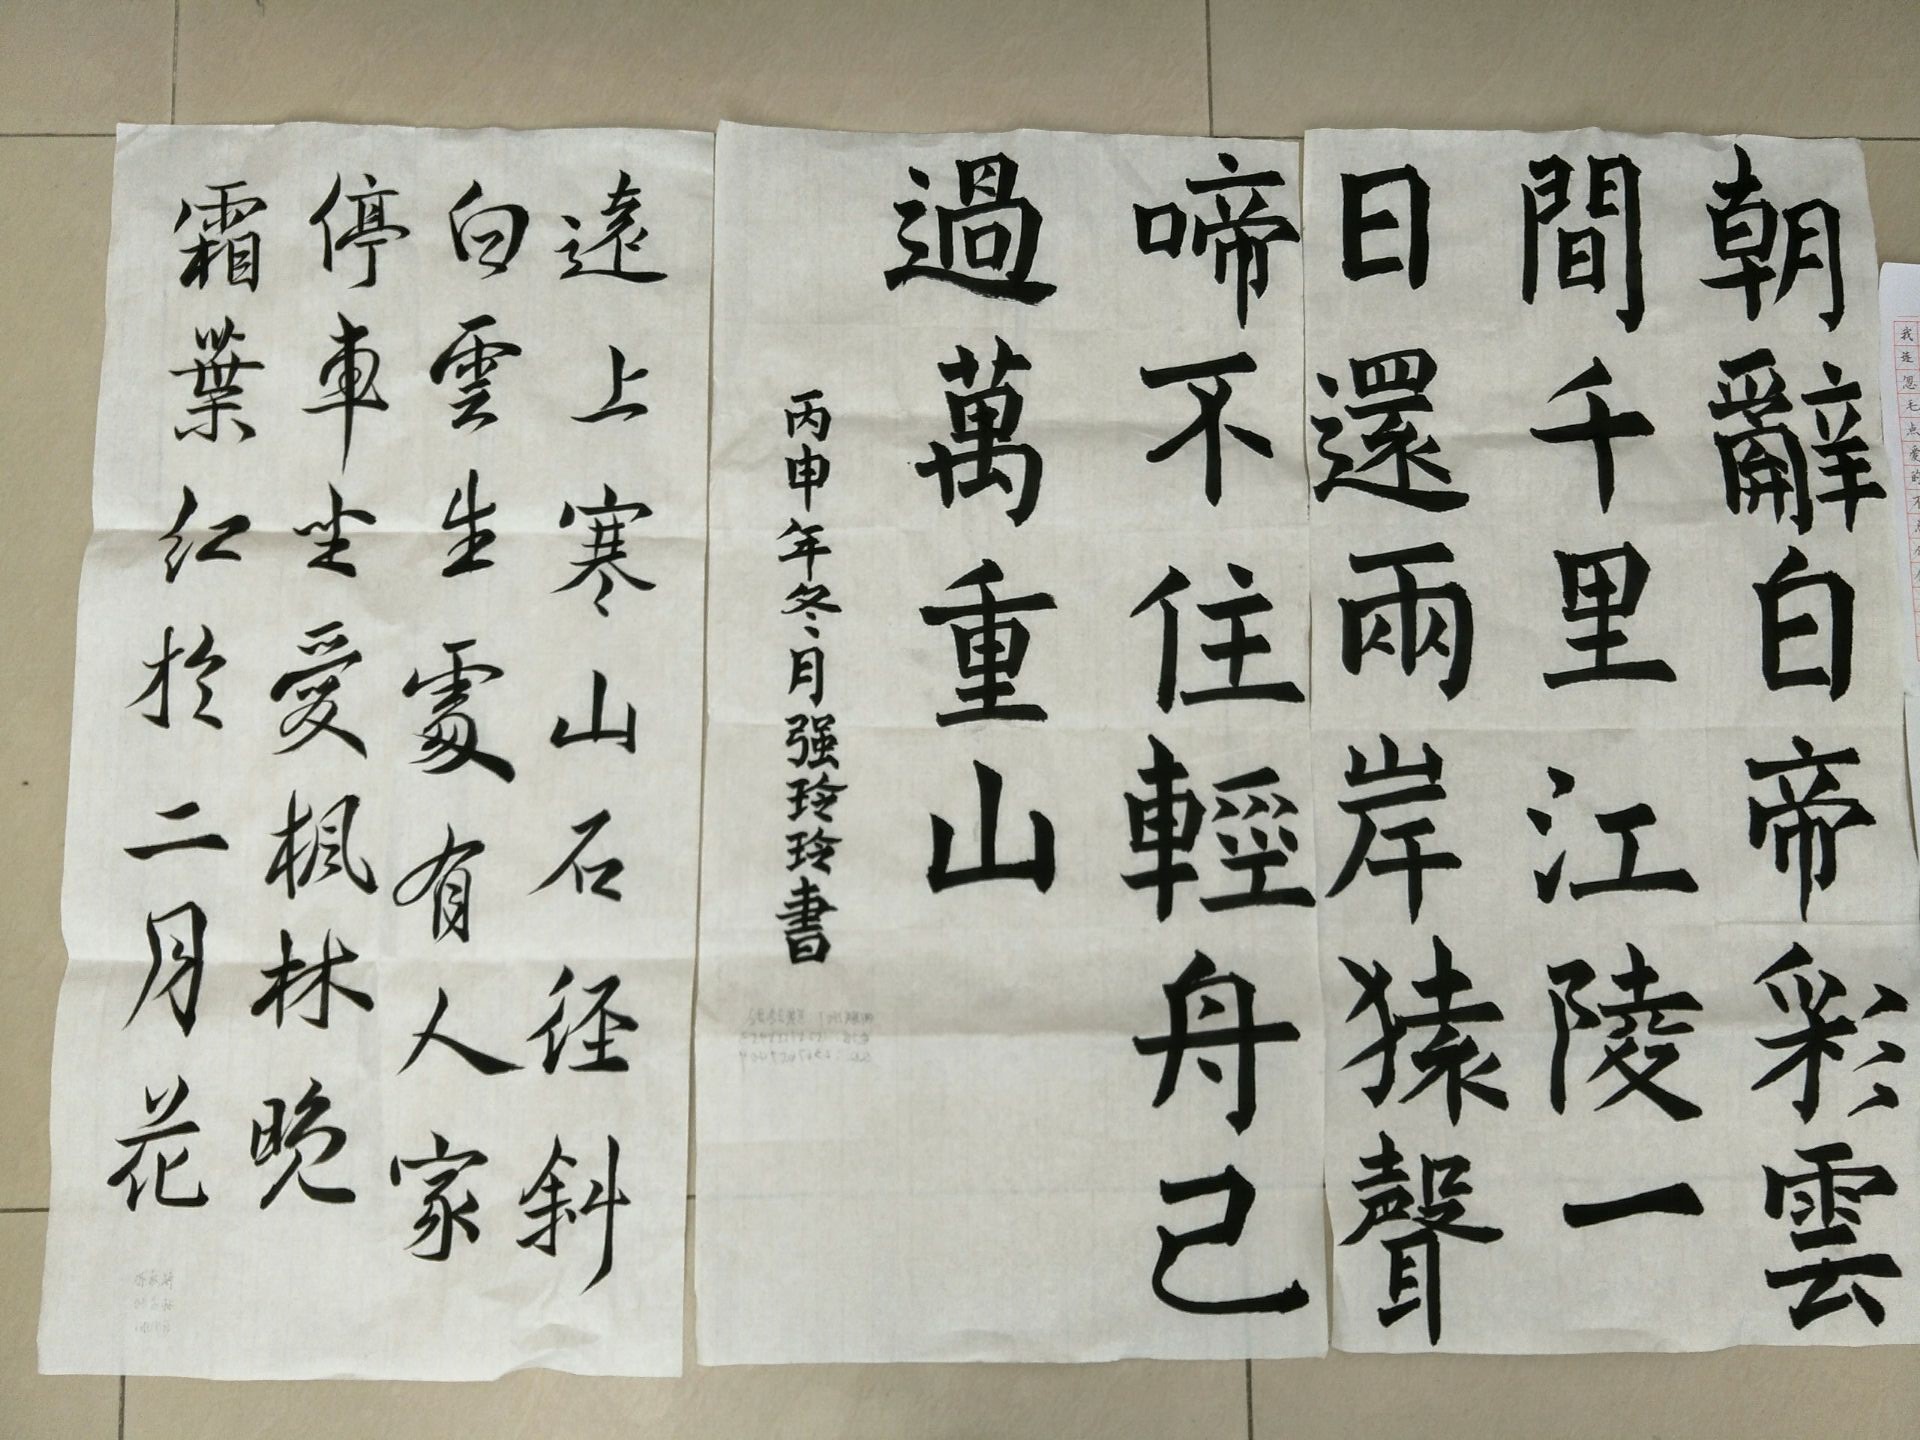 朝辭白帝彩雲
間千里江陵一
日還兩岸猿聲
啼不住輕舟已
過萬重山
丙申年冬月强玲玲書
遠上寒山石径斜
白雲生處有人家
停車坐愛楓林晚
霜葉红於二月花